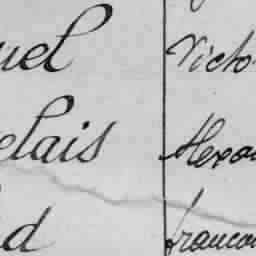 uel Victo
elais Alexan
d francoi